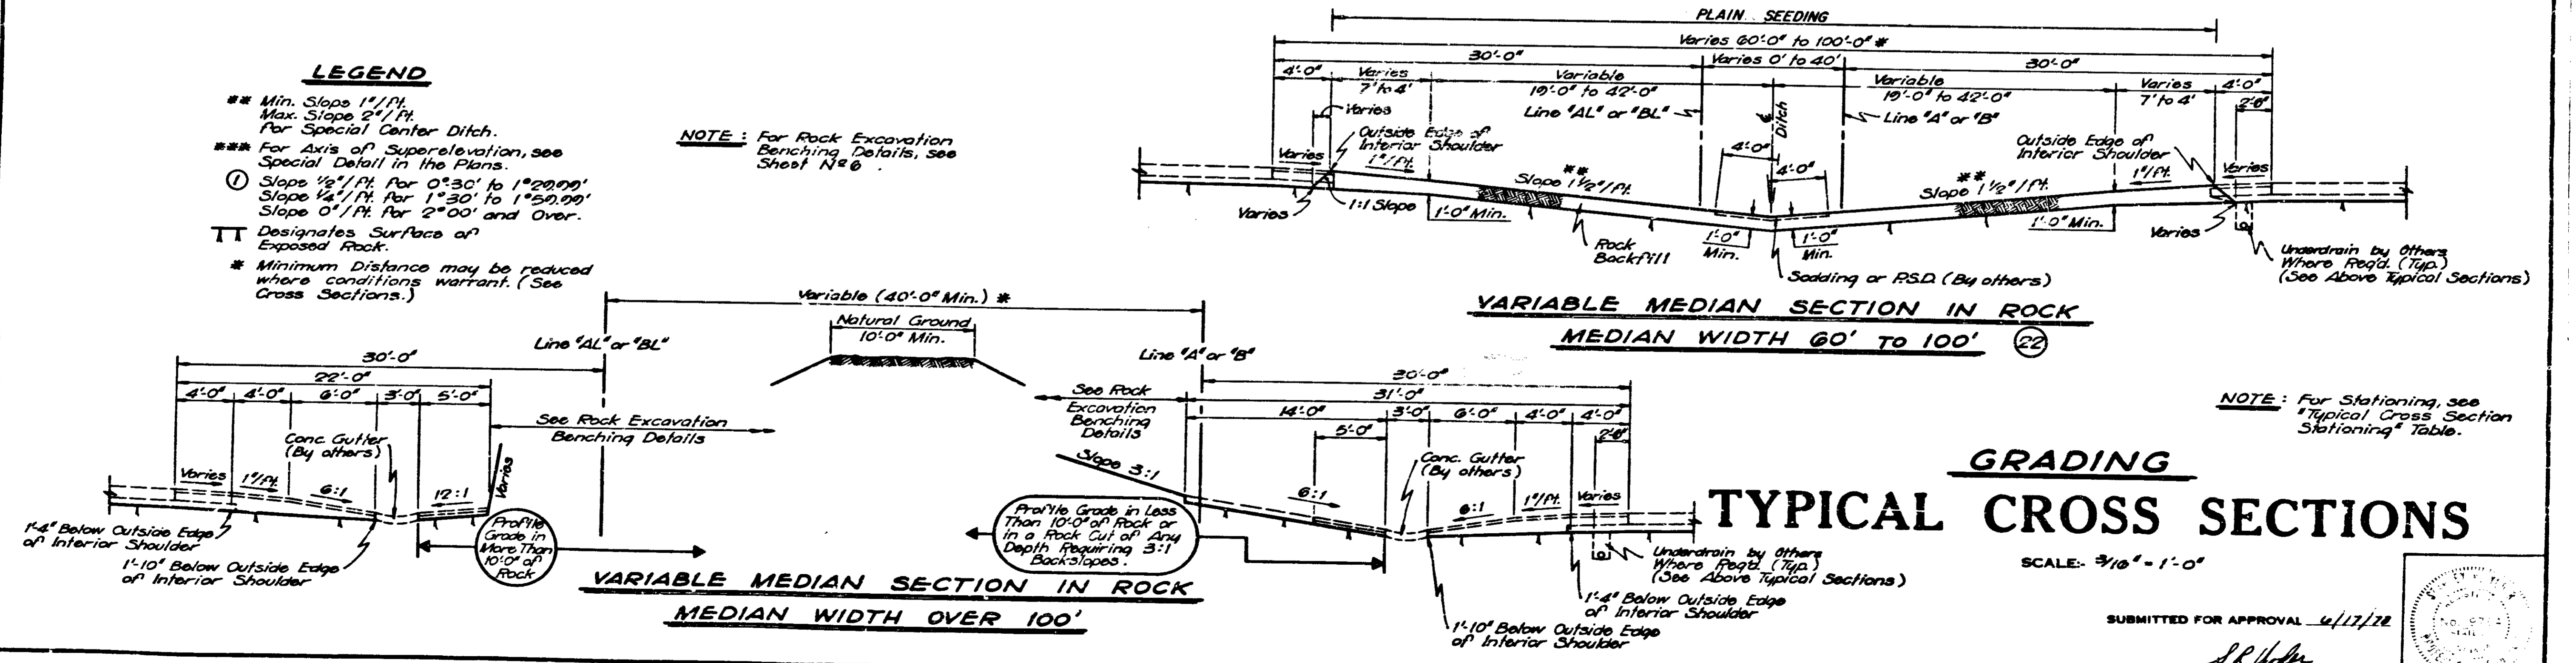 LEGEND
** Min. Slope 1"/ft.
Max. Slope 2"/ft.
for Special Center Ditch.
*** For Axis of Superelevation, see
Special Detail in the Plans.
① Slope ½"/ft. for 0°30' to 1°29.99'
Slope ¼"/ft. for 1°30' to 1°59.99'
Slope 0"/ft. for 2°00' and Over.
Designates Surface of
Exposed Rock.
* Minimum Distance may be reduced
where conditions warrant. (See
Cross Sections.)
NOTE: For Rock Excavation
Benching Details, see
Sheet Nº 6.
PLAIN SEEDING
Varies 60'-0" to 100'-0" *
30'-0"
Varies 0' to 40'
30'-0"
4'-0"
Varies
7' to 4'
Variable
19'-0" to 42'-0"
Variable
19'-0" to 42'-0"
Varies
7' to 4'
4'-0"
2'-6"
Varies
Line "AL" or "BL"
℄ Ditch
Line "A" or "B"
Outside Edge of
Interior Shoulder
Outside Edge of
Interior Shoulder
4'-0"
4'-0"
Varies
1"/ft.
**
Slope 1½"/ft.
**
Slope 1½"/ft.
1"/ft.
Varies
Varies
1:1 Slope
1'-0" Min.
Rock
Backfill
1'-0"
Min.
1'-0"
Min.
1'-0" Min.
Varies
Sodding or P.S.D. (By others)
Underdrain by Others
Where Req'd. (Typ.)
(See Above Typical Sections)
VARIABLE MEDIAN SECTION IN ROCK
MEDIAN WIDTH 60' TO 100' 22
Variable (40'-0" Min.) *
Natural Ground
10'-0" Min.
Line "AL" or "BL"
Line "A" or "B"
30'-0"
22'-0"
4'-0" 4'-0" 6'-0" 3'-0" 5'-0"
See Rock Excavation
Benching Details
Conc. Gutter
(By others)
Varies
1"/ft.
6:1
12:1
Varies
1'-4" Below Outside Edge
of Interior Shoulder
1'-10" Below Outside Edge
of Interior Shoulder
Profile
Grade in
More Than
10'-0" of
Rock
See Rock
Excavation
Benching
Details
30'-0"
31'-0"
14'-0" 3'-0" 6'-0" 4'-0" 4'-0"
5'-0"
2'-6"
Slope 3:1
Conc. Gutter
(By others)
6:1
6:1
1"/ft.
Varies
Profile Grade in Less
Than 10'-0" of Rock or
in a Rock Cut of Any
Depth Requiring 3:1
Backslopes.
Underdrain by Others
Where Req'd. (Typ.)
(See Above Typical Sections)
1'-4" Below Outside Edge
of Interior Shoulder
1'-10" Below Outside Edge
of Interior Shoulder
VARIABLE MEDIAN SECTION IN ROCK
MEDIAN WIDTH OVER 100'
NOTE: For Stationing, see
"Typical Cross Section
Stationing" Table.
GRADING
TYPICAL CROSS SECTIONS
SCALE:- 3/16" = 1'-0"
SUBMITTED FOR APPROVAL 6/17/72